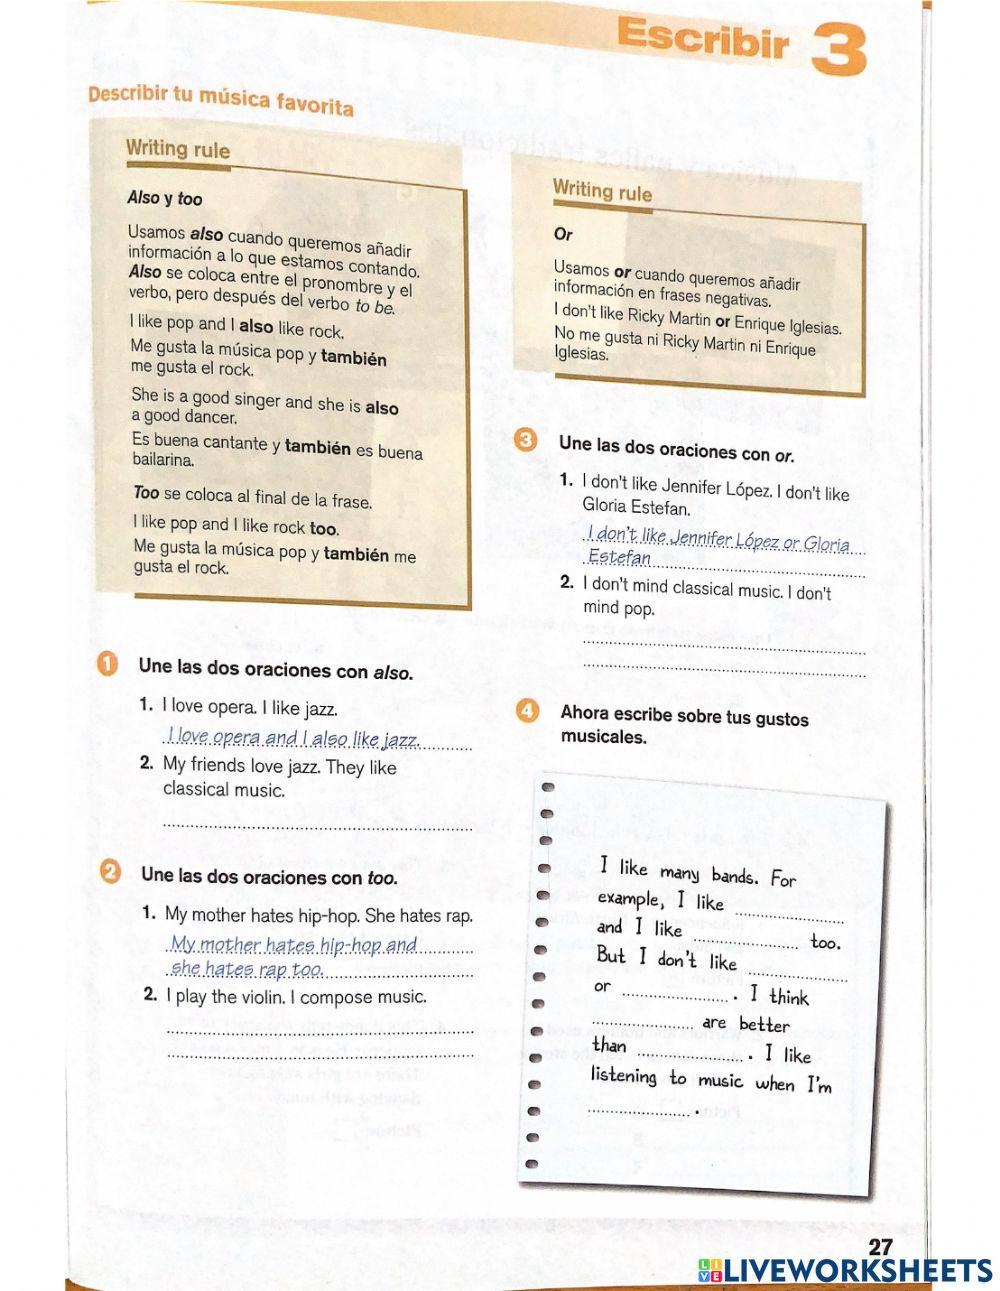 Escribir 3
Describir tu música favorita
Writing rule
Also y too
Usamos also cuando queremos añadir
información a lo que estamos contando.
Also se coloca entre el pronombre y el
verbo, pero después del verbo to be.
I like pop and I also like rock.
Me gusta la música pop y también
me gusta el rock.
She is a good singer and she is also
a good dancer.
Es buena cantante y también es buena
bailarina.
Too se coloca al final de la frase.
I like pop and I like rock too.
Me gusta la música pop y también me
gusta el rock.
1 Une las dos oraciones con also.
1. I love opera. I like jazz.
I love opera and I also like jazz.
2. My friends love jazz. They like
classical music.
2 Une las dos oraciones con too.
1. My mother hates hip-hop. She hates rap.
My mother hates hip-hop and
she hates rap too.
2. I play the violin. I compose music.
Writing rule
Or
Usamos or cuando queremos añadir
información en frases negativas.
I don't like Ricky Martin or Enrique Iglesias.
No me gusta ni Ricky Martin ni Enrique
Iglesias.
3 Une las dos oraciones con or.
1. I don't like Jennifer López. I don't like
Gloria Estefan.
I don't like Jennifer López or Gloria
Estefan
2. I don't mind classical music. I don't
mind pop.
4 Ahora escribe sobre tus gustos
musicales.
I like many bands. For
example, I like
and I like too.
But I don't like
or . I think
are better
than . I like
listening to music when I'm
.
27
LIVEWORKSHEETS